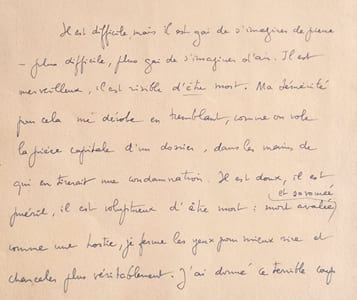 Il est difficile mais il est gai de s'imaginer de pierre
– plus difficile, plus gai de s'imaginer d'air. Il est
merveilleux, il est risible d'être mort. Ma sénérité
pour cela me dérobe en tremblant, comme on vole
la pièce capitale d'un dossier, dans les mains de
qui en tirerait une condamnation. Il est doux, il est
et savourée
puéril, il est voluptueux d'être mort : mort avalée
comme une hostie, je ferme les yeux pour mieux rire et
chanceler plus véritablement. J'ai donné ce terrible coup